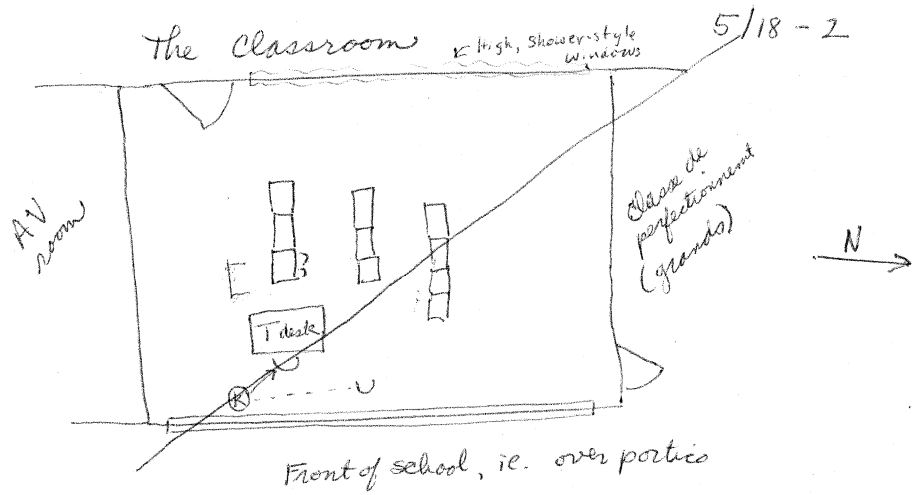 5/18 - 2
The Classroom
High, shower-style
windows
AV
room
Classe de
perfectionnement
(grands)
N
T desk
K
Front of school, ie. over portico